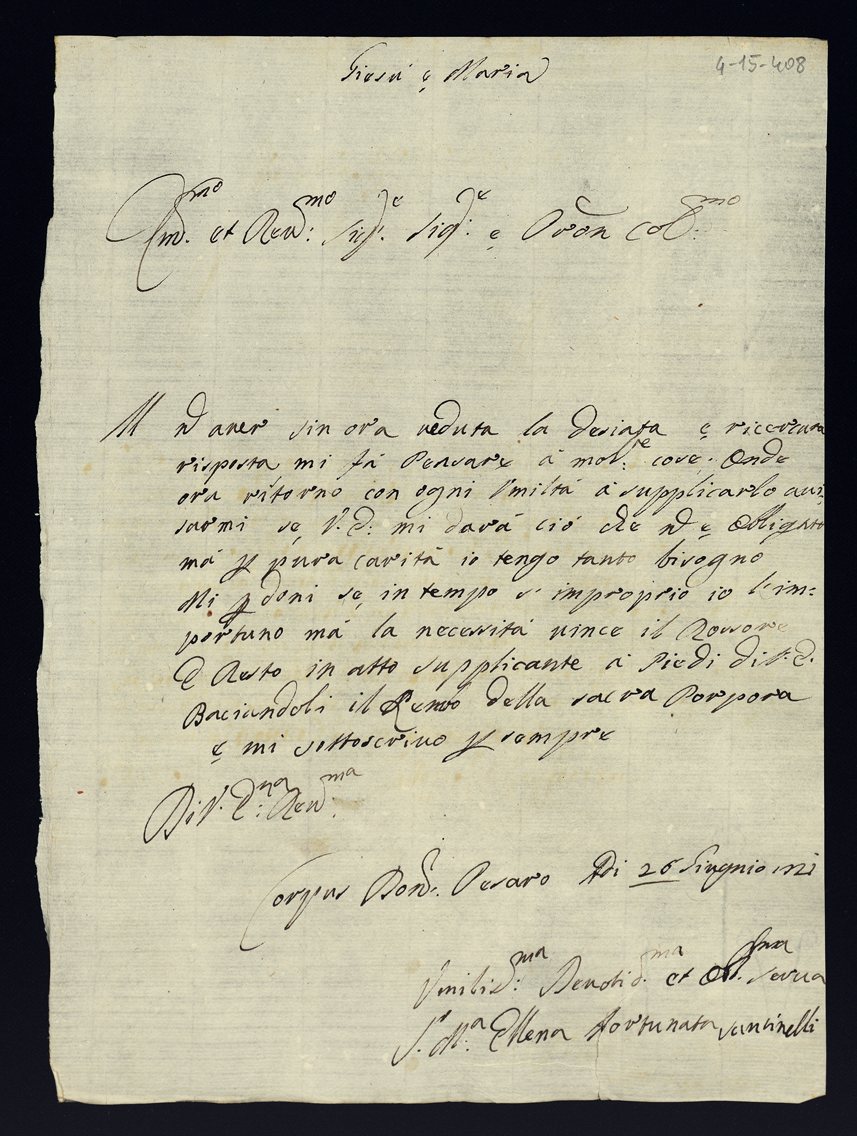 Giesù e Maria
4-15-408
Em.mo et Reu:mo Sig.re Sig:re e Pron Col:mo
Il nõ auer sin ora ueduta la desiata e ricercata
risposta mi fà Pensare à mol:te cose. Onde
ora ritorno con ogni Vmiltà à supplicarlo aui:
sarmi se V. E: mi darà ciò che nõ e Obligato
mà p pura carità io tengo tanto bisogno
Mi pdoni se in tempo sì improprio io l'im=
portuno mà la necessità uince il Rossore
E Resto in atto supplicante à Piedi di V: E.
Baciandoli il lembo della sacra Porpora
e mi sottoscriuo p sempre
Di V. E:na Reu:ma
Corpus Dom: Pesaro Adi 26 Giugnio
Vmilis:ma Deuotis:ma et Ob:ma Serua
S.r M:a Ellena Fortunata Santinelli